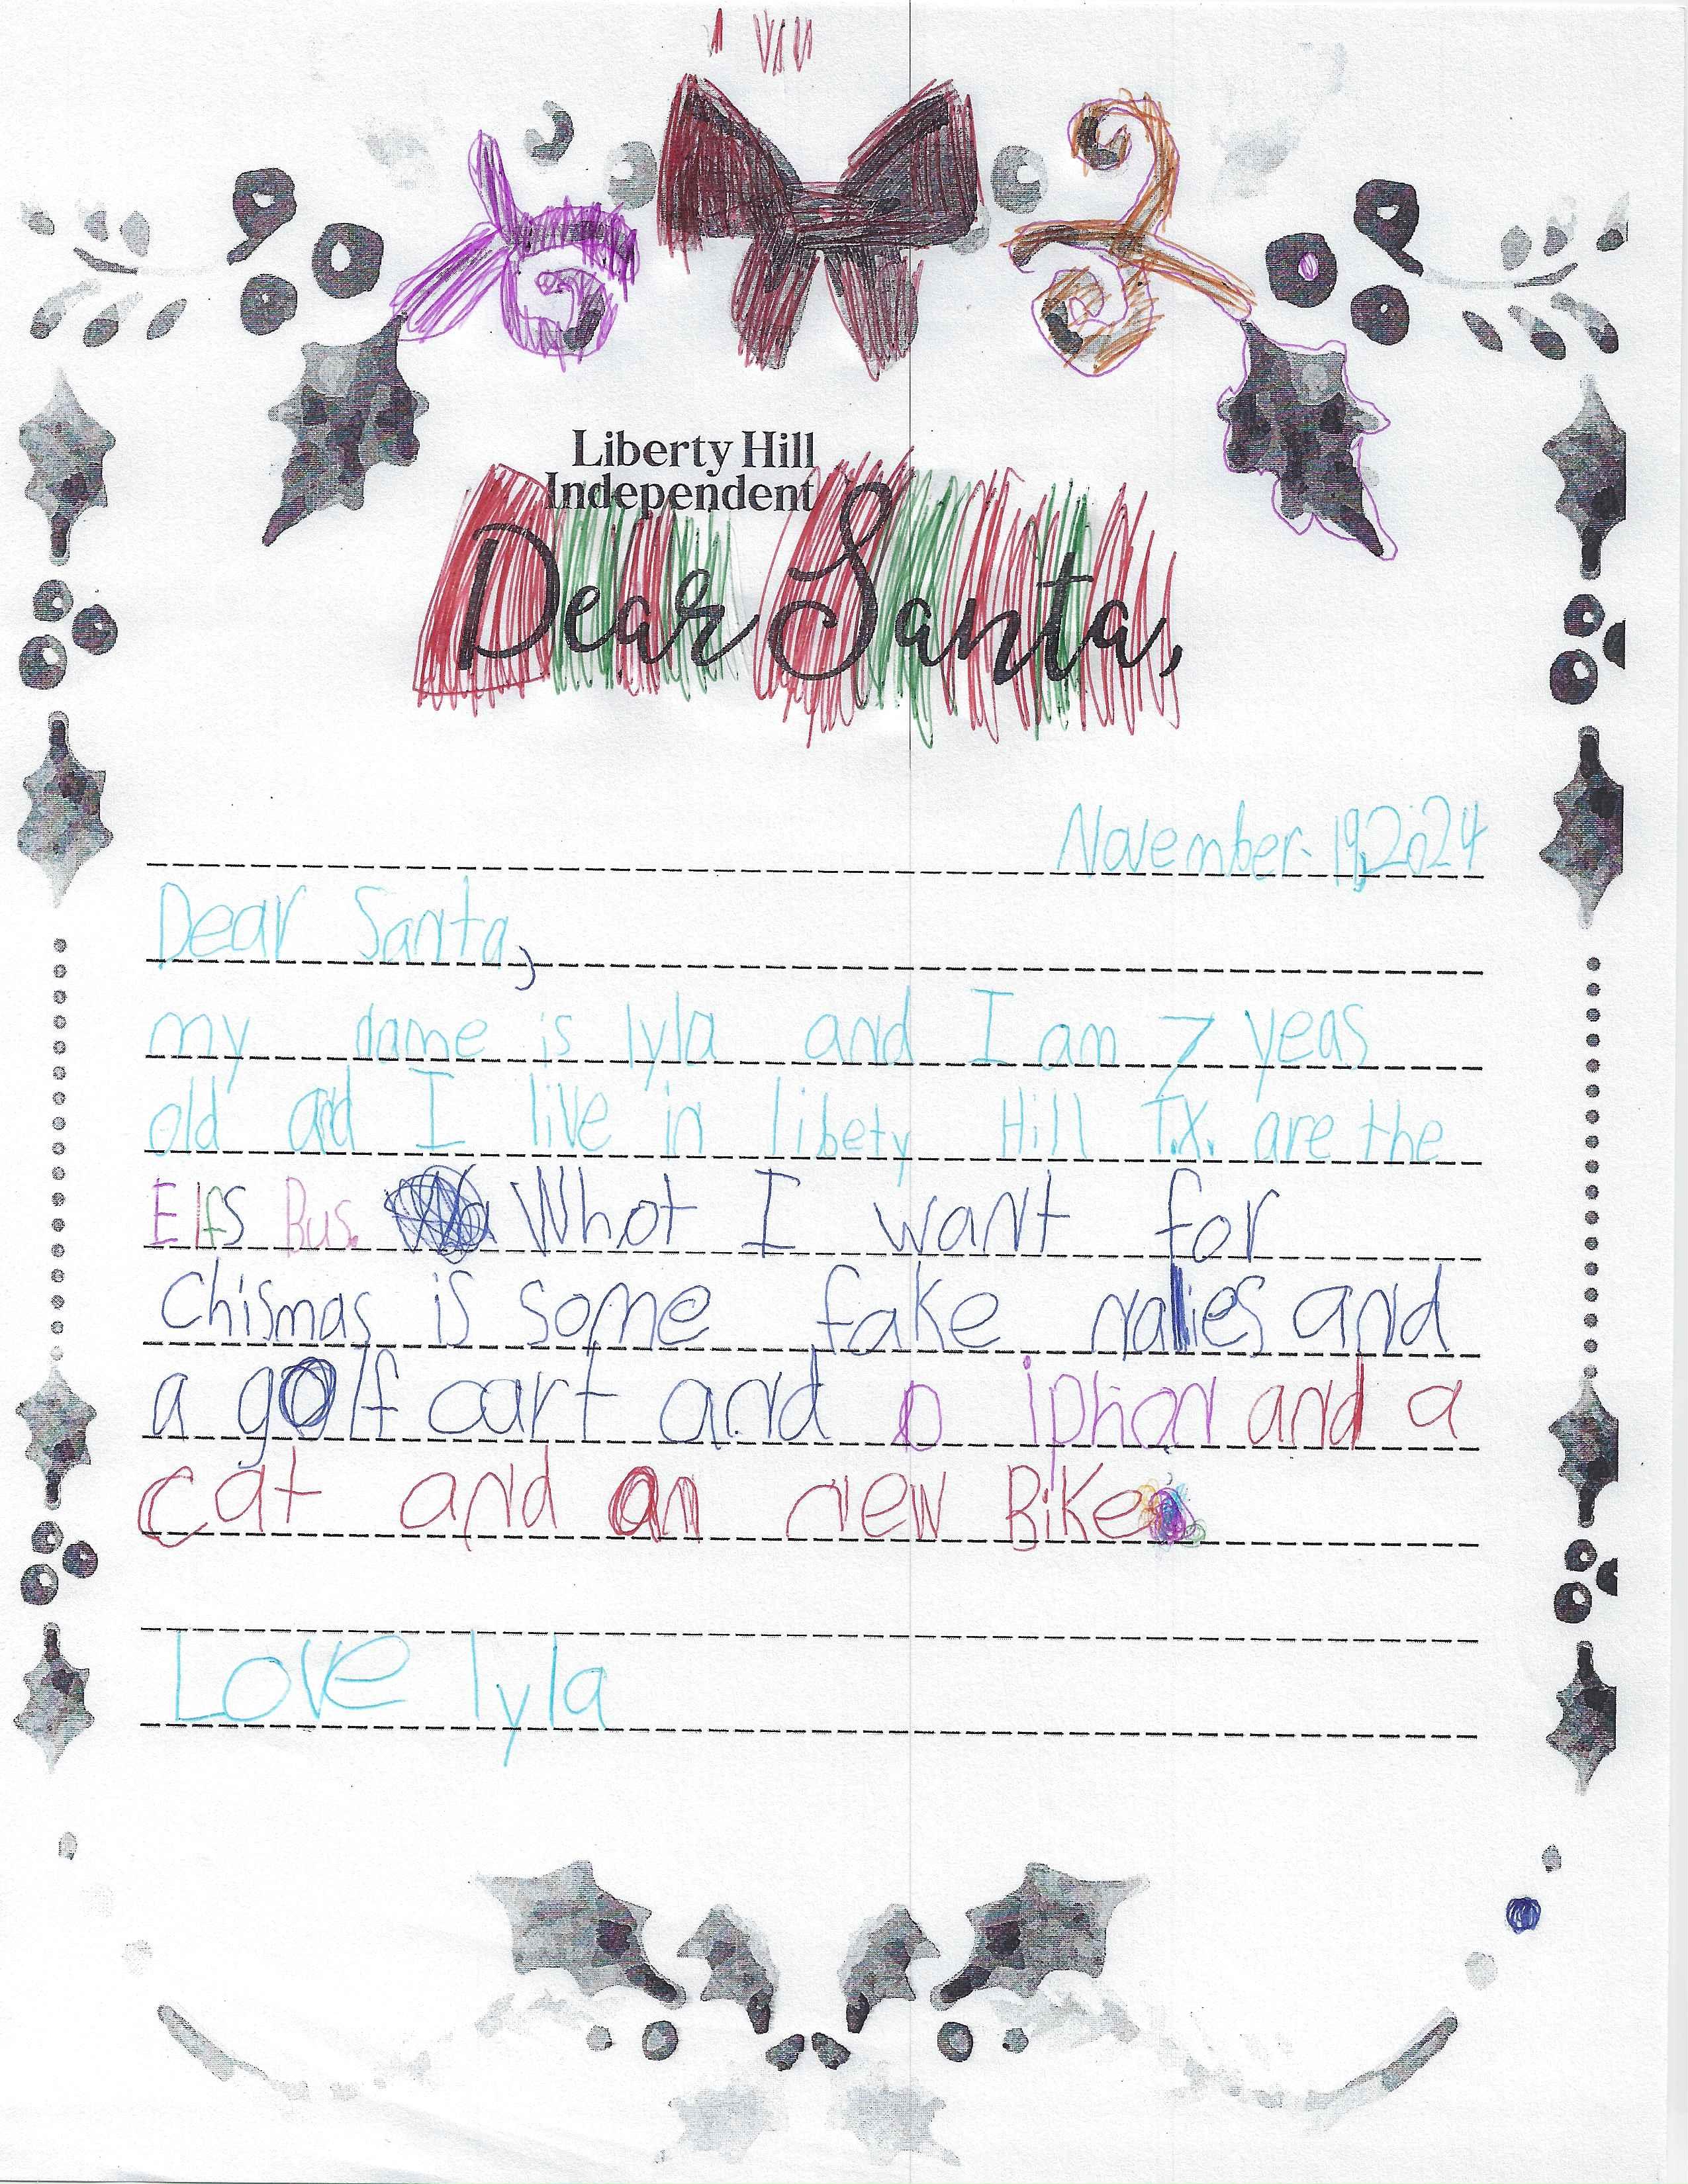 Liberty Hill
Independent
Dear Santa,
November. 19, 2024
Dear Santa,
my name is lyla and I am 7 yeas
old and I live in libety Hill T.X. are the
Elfs Bus. What I want for
Chismas is some fake nalies and
a golf cart and a iphon and a
cat and an new Bike.
Love lyla